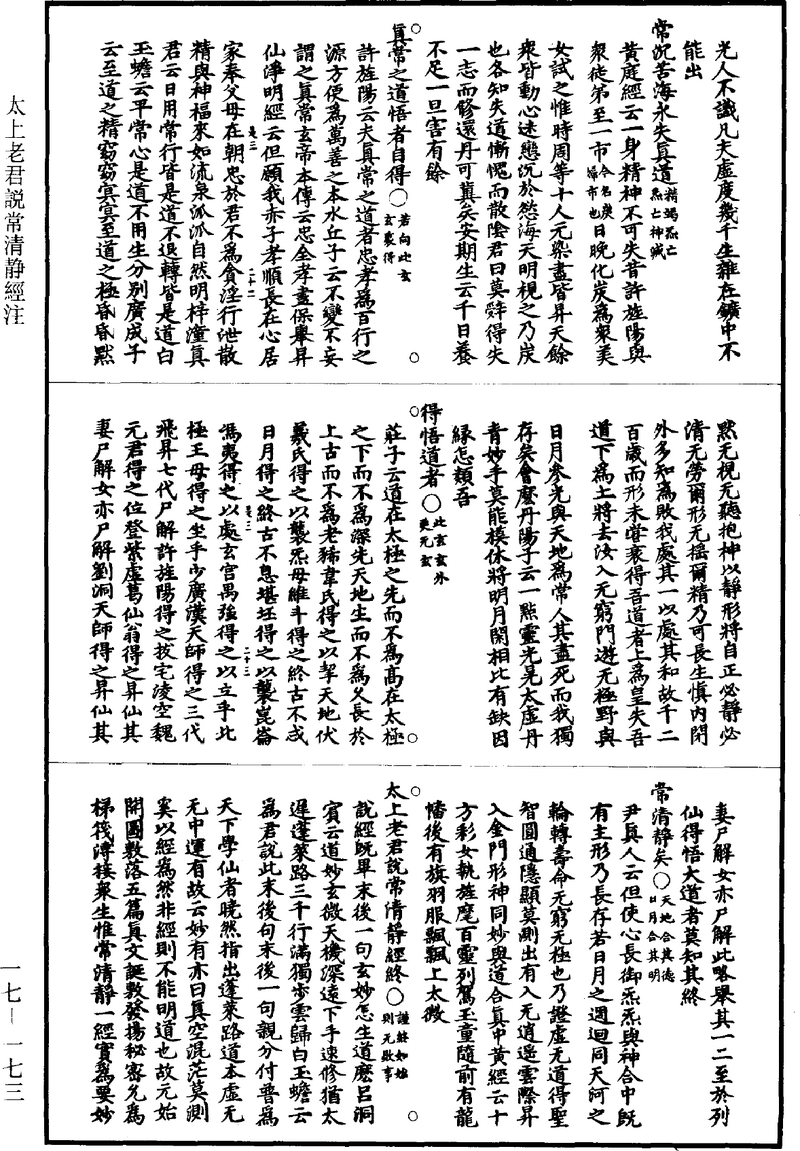 太上老君説常清静經注
光人不識凡夫虛度幾千生雜在鑛中不
能出
常沉苦海永失真道精竭炁亡炁亡神滅
黃庭經云一身精神不可失昔許旌陽與
衆徒弟至一市今名炭婦市也日晚化炭爲衆美
女試之惟時周等十人元染盡皆昇天餘
衆皆動心迷戀沉於慾海天明視之乃炭
也各知失道慚愧而散隂君曰莫辤得失
一志而修還丹可冀矣安期生云千日養
不足一旦害有餘
真常之道悟者自得○若向此玄玄裏得
許旌陽云夫真常之道者忠孝爲百行之
源方便爲萬善之本水丘子云不變不妄
謂之真常玄帝本傳云忠全孝盡保舉昇
仙淨明經云但願我赤子孝順長在心居
家奉父母在朝忠於君不爲貪淫行泄散
精與神福來如流泉派派自然明梓潼真
君云日用常行皆是道不退轉皆是道白
玉蟾云平常心是道不用生分别廣成子
云至道之精窈窈冥冥至道之極昏昏默
默无視无聽抱神以靜形將自正必靜必
清无勞爾形无揺爾精乃可長生慎内閉
外多知爲敗我處其一以處其和故千二
百歲而形未甞衰得吾道者上爲皇失吾
道下爲土將去汝入无窮門遊无極野與
日月參光與天地爲常人其盡死而我獨
存矣會麽丹陽子云一點靈光晃太虛丹
青妙手莫能模休將明月閑相比有缺因
緣怎類吾
得悟道者○此玄玄外更元玄
莊子云道在太極之先而不爲高在太極
之下而不爲深先天地生而不爲父長於
上古而不爲老狶韋氏得之以挈天地伏
羲氏得之以襲炁母維斗得之終古不忒
日月得之終古不息堪坯得之以襲崑崙
馮夷得之以處玄宫禺強得之以立乎北
極王母得之坐乎少廣漢天師得之三代
飛昇七代尸解許旌陽得之拔宅淩空魏
元君得之位登紫虛葛仙翁得之昇仙其
妻尸解女亦尸解劉洞天師得之昇仙其
妻尸解女亦尸解此畧舉其一二至於列
仙得悟大道者莫知其終
常清静矣○天地合其德日月合其明
尹真人云但使心長御炁炁與神合中既
有主形乃長存若日月之週迴同天河之
輪轉壽命无窮无極也乃證虛无道得聖
智圓通隱顯莫測出有入无逍遥雲際昇
入金門形神同妙與道合真中黃經云十
方彩女執旌麾百靈列駕玉童隨前有龍
幡後有旗羽服飄飄上太微
太上老君說常清静經終○謹終如始則无敗事
說經既畢末後一句玄妙怎生道麽吕洞
賓云道妙玄微天機深遠下手速修猶太
遲蓬萊路三千行滿獨步雲歸白玉蟾云
爲君說此末後句末後一句親分付普爲
天下學仙者曉然指出蓬萊路道本虛无
无中運有故云妙有亦曰真空混茫莫測
奚以經爲然非經則不能明道也故元始
開圖敷落五篇真文誕敷發揚秘密允爲
梯筏溥接衆生惟常清静一經實爲要妙
是三
二十二
是三
二十三
一七—一七三